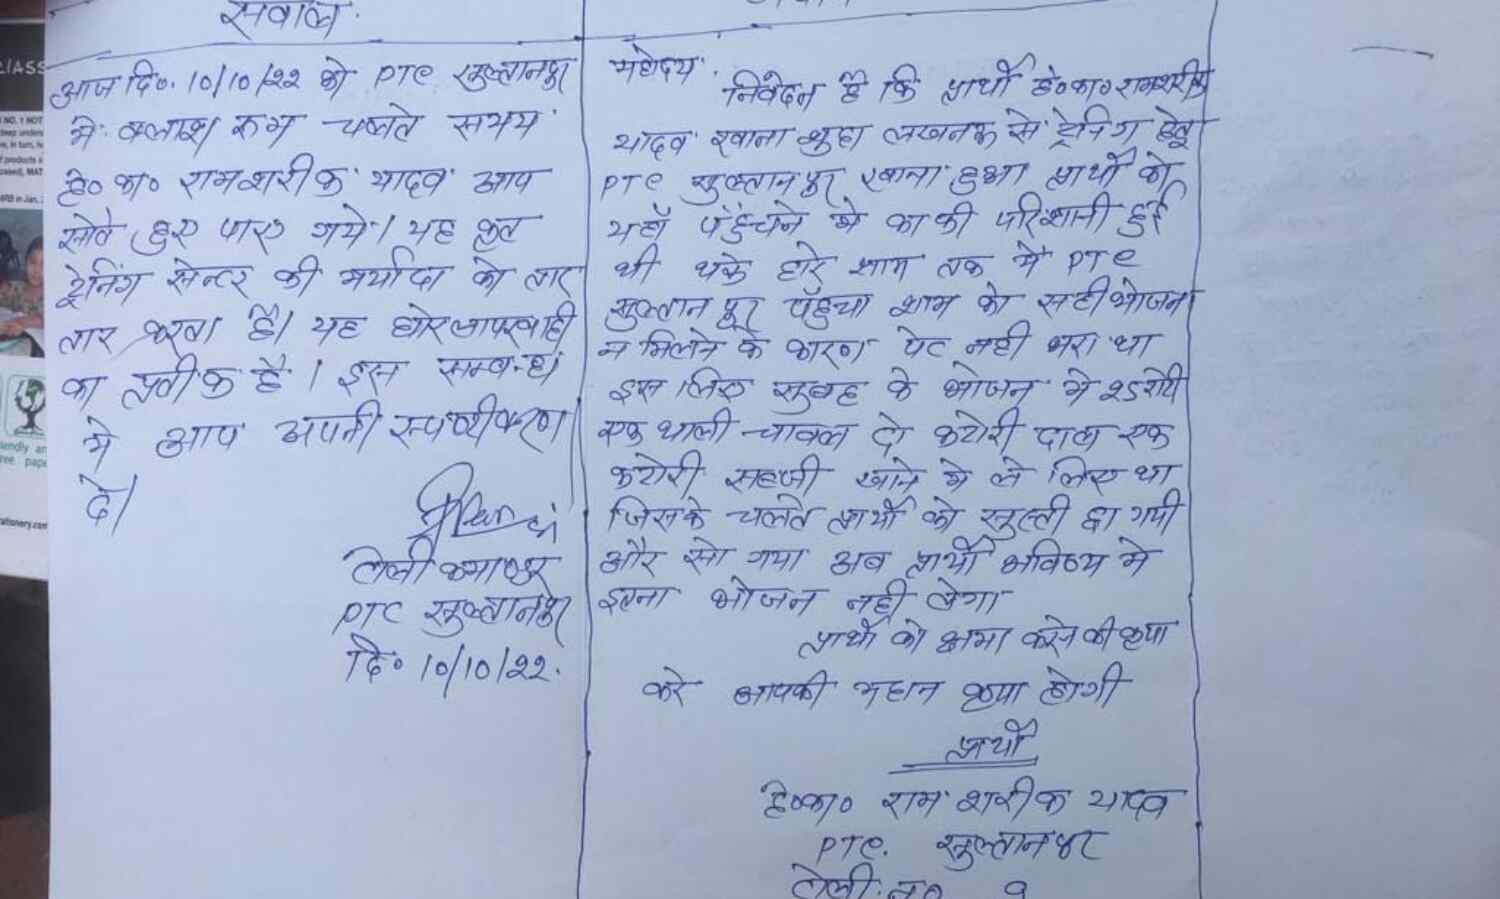 सवाल
आज दि०. 10/10/22 को PTC सुल्तानपुर
मे क्लाश रूम चलते समय
हे० का० रामशरीक यादव आप
सोते हुए पाए गये। यह कृत
ट्रेनिंग सेन्टर की मर्यादा को तार
तार करता है। यह घोर लापरवाही
का प्रतीक है। इस सम्बन्ध
मे आप अपनी स्पष्टीकरण
दे।
टोली कमाण्डर
PTC सुल्तानपुर
दि० 10/10/22.
महोदय.
निवेदन है कि प्रार्थी हे०का० रामशरीक
यादव रवाना शुदा लखनऊ से ट्रेनिंग हेतु
PTC सुल्तानपुर रवाना हुआ प्रार्थी को
यहाँ पँहुचने मे काफी परिशानी हुई
थी थके हारे शाम तक मै PTC
सुल्तानपुर पँहुचा शाम को सही भोजन
न मिलने के कारण पेट नही भरा था
इस लिए सुबह के भोजन मे 25 रोटी
एक थाली चावल दो कटोरी दाल एक
कटोरी सब्जी खाने मे ले लिए था
जिसके चलते प्रार्थी को सुस्ती छा गयी
और सो गया अब प्रार्थी भविष्य मे
इतना भोजन नही लेगा
प्रार्थी को क्षमा करने की कृपा
करे आपकी महान कृपा होगी
प्रार्थी
हे०का० राम शरीक यादव
PTC. सुल्तानपुर
टोली. न०
CLASS
NO. 1 NOT